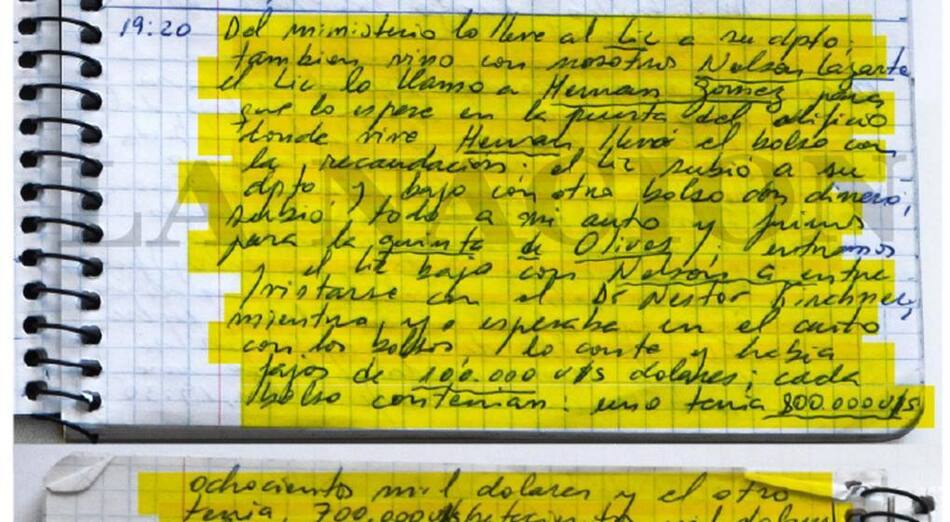 19:20 Del miministerio lo lleve al Lic a su dpto;
tambien vino con nosotros Nelson Lazarte
el Lic lo llamo a Hernan Gomez para
que lo espere en la puerta del edificio
donde vive Hernan llevó el bolso con
la recaudacion; el Lic subio a su
dpto y bajo con otro bolso con dinero;
subio todo a mi auto y fuimos
para la quinta de Olivos y entramos
y el Lic bajo con Nelson a entre
/vistarse con el Dr Nestor Kirchner,
mientras yo esperaba en el auto
con los bolsos, lo conte y habia
fajos de 100.000 U/S dolares; cada
bolso contenian: uno tenia 800.000 U/S
ochocientos mil dolares y el otro
tenia 700.000 U/S setecientos mil dolares
LA NACION